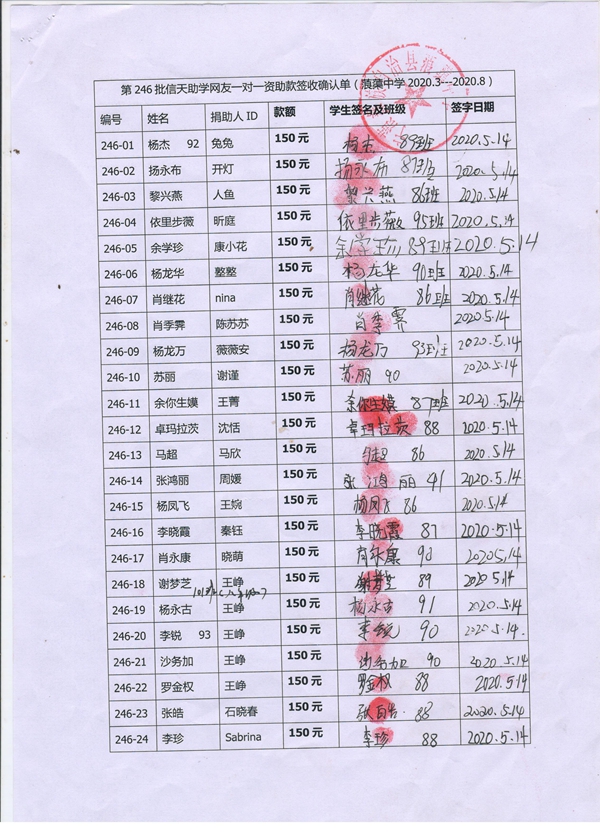 第 246 批信天助学网友一对一资助款签收确认单（蒗蕖中学 2020.3---2020.8）
编号 姓名 捐助人 ID 款额 学生签名及班级 签字日期
246-01 杨杰 92 兔兔 150 元 杨杰 89班 2020.5.14
246-02 扬永布 开灯 150 元 扬永布 87班 2020.5.14
246-03 黎兴燕 人鱼 150 元 黎兴燕 86班 2020.5.14
246-04 依里步薇 昕庭 150 元 依里步薇 95班 2020.5.14
246-05 余学珍 康小花 150 元 余学珍 89班 2020.5.14
246-06 杨龙华 整整 150 元 杨龙华 90班 2020.5.14
246-07 肖继花 nina 150 元 肖继花 86班 2020.5.14
246-08 肖季霁 陈苏苏 150 元 肖季霁 2020.5.14
246-09 杨龙万 薇薇安 150 元 杨龙万 93班 2020.5.14
246-10 苏丽 谢谨 150 元 苏丽 90 2020.5.14
246-11 余你生嫫 王菁 150 元 余你生嫫 87班 2020.5.14
246-12 卓玛拉茨 沈恬 150 元 卓玛拉茨 88 2020.5.14
246-13 马超 马欣 150 元 马超 86 2020.5.14
246-14 张鸿丽 周媛 150 元 张鸿丽 91 2020.5.14
246-15 杨凤飞 王婉 150 元 杨凤飞 86 2020.5.14
246-16 李晓霞 秦钰 150 元 李晓霞 87 2020.5.14
246-17 肖永康 晓萌 150 元 肖永康 90 2020.5.14
246-18 谢梦芝 王峥 150 元 谢梦芝 89 2020 5.14
246-19 杨永古 王峥 150 元 杨永古 91 2020.5.14
246-20 李锐 93 王峥 150 元 李锐 90 2020.5.14.
246-21 沙务加 王峥 150 元 沙务加 90 2020.5.14
246-22 罗金权 王峥 150 元 罗金权 88 2020.5.14
246-23 张皓 石晓春 150 元 张皓 88 2020.5.14
246-24 李珍 Sabrina 150 元 李珍 88 2020.5.14